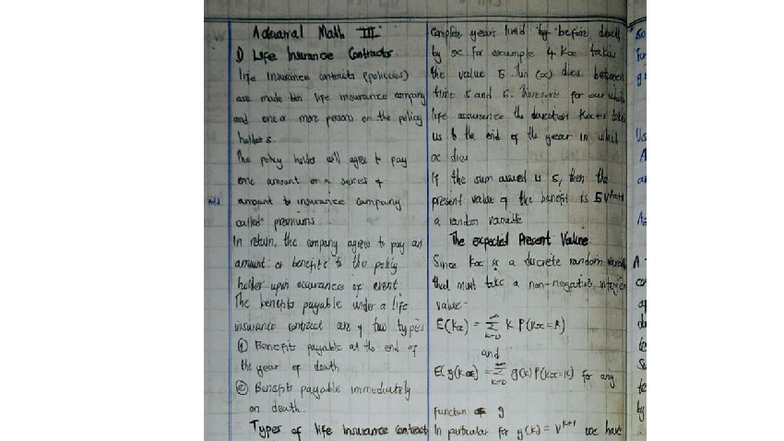 Actuarial Math III
1) Life Insurance Contracts
Life Insurance contracts (policies)
are made btn life insurance company
and one or more persons or the policy
holders.
The policy holder will agree to pay
one amount or a series of
amount to insurance company
called premiums
In return, the company agrees to pay an
amount or benefits to the policy
holder upon occurance of event
The benefits payable under a life
insurance contract are of two types
① Benefits payable at the end of
the year of death
② Benefits payable immediately
on death.
Types of life Insurance contract
complete years lived by before death
by x for example if Kx takes
the value 5 then (x) dies between
time 5 and 6. Therefore for our whole
life assurance the duration Kx+1 takes
us to the end of the year in which
x dies
If the sum assured is S, then the
present value of the benefit is SV^Kx+1
a random variable
The expected Present Value
Since Kx is a discrete random variable
that must take a non-negative integer
value-
E(Kx) = ∞ Σ k=0 k P(Kx=k)
and
E[g(Kx)] = ∞ Σ k=0 g(k) P(Kx=k) for any
function of g
In particular for g(k) = v^k+1 we have